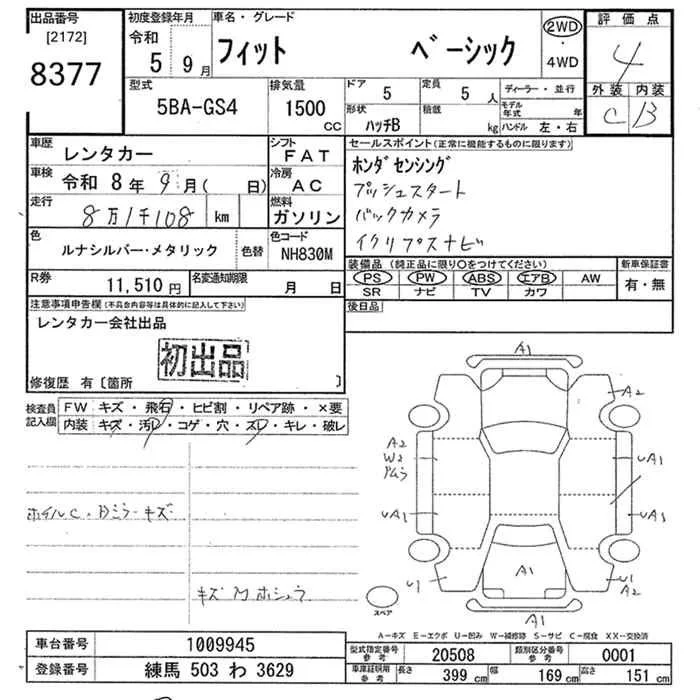 出品番号 初度登録年月 車名・グレード 評価点
[2172] 令和 フィット ベーシック 2WD・4WD 4
8377 5 9月 外装 内装
型式 排気量 ドア 定員 ディーラー・並行 C B
5BA-GS4 1500 CC 5 5人 モデル年式 年
形状 積載 kg ハンドル 左・右
ハッチB
車歴 レンタカー シフト FAT セールスポイント(正常に機能するものに限ります)
車検 令和 8年 9月( 日) 冷房 AC ホンダセンシング
走行 8万1千108 km 燃料 ガソリン プッシュスタート
バックカメラ
色 ルナシルバー・メタリック 色替 色コード NH830M イクリプスナビ
R券 11,510円 名変通知期限 月 日 装備品(純正品に限り○をつけてください) 新車保証書
PS PW ABS エアB AW 有・無
SR ナビ TV カワ
注意事項申告欄(不具合内容等は具体的に記入して下さい) 後日品
レンタカー会社出品
初出品
修復歴 有〔箇所 〕
検査員記入欄 FW キズ・飛石・ヒビ割・リペア跡・×要
内装 キズ・汚レ・コゲ・穴・スレ・キレ・破レ
A1
A2
A2
W2
UA1
UA1
UA1
ホイルC・Bミラーキズ
A1
U1
U1
A2
キズ
スペア
A1
A-キズ E-エクボ U-凹み W-補修跡 S-サビ C-腐食 XX-交換済
車台番号 1009945 型式指定番号 参考 20508 類別区分番号 参考 0001
登録番号 練馬 503 わ 3629 車庫証明用 参考 長さ 399 cm 幅 169 cm 高さ 151 cm